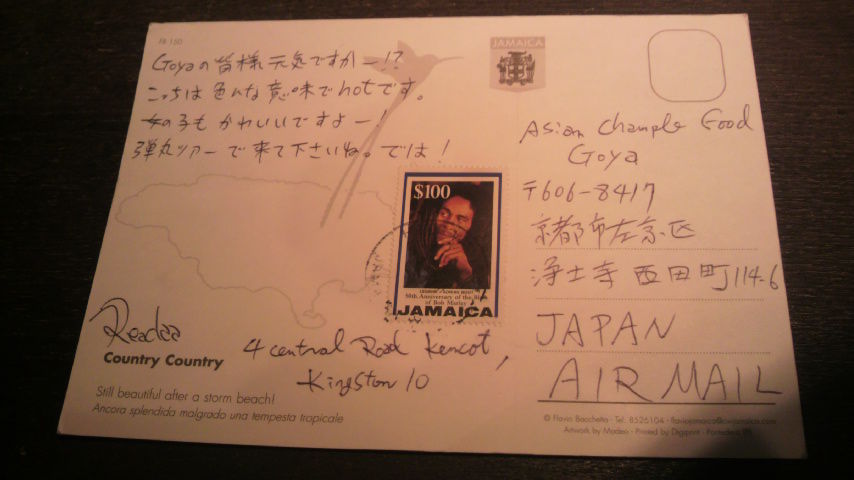 FB 150
Goyaの皆様元気ですかー!?
こっちは色んな意味でhotです。
女の子もかわいいですよー!
弾丸ツアーで来て下さいね。では!
JAMAICA
Asian Chample Food
Goya
〒606-8417
京都市左京区
浄土寺西田町114-6
JAPAN
AIR MAIL
$100
50th Anniversary of the Birth
of Bob Marley
JAMAICA
4 central Road Kencot,
Kingston 10
Country Country
Still beautiful after a storm beach!
Ancora splendida malgrado una tempesta tropicale
© Flavio Bacchetta - Tel: 8526104 - flaviojamaica@cwjamaica.com
Artwork by Madeo - Printed by Digiprint - Pontedera